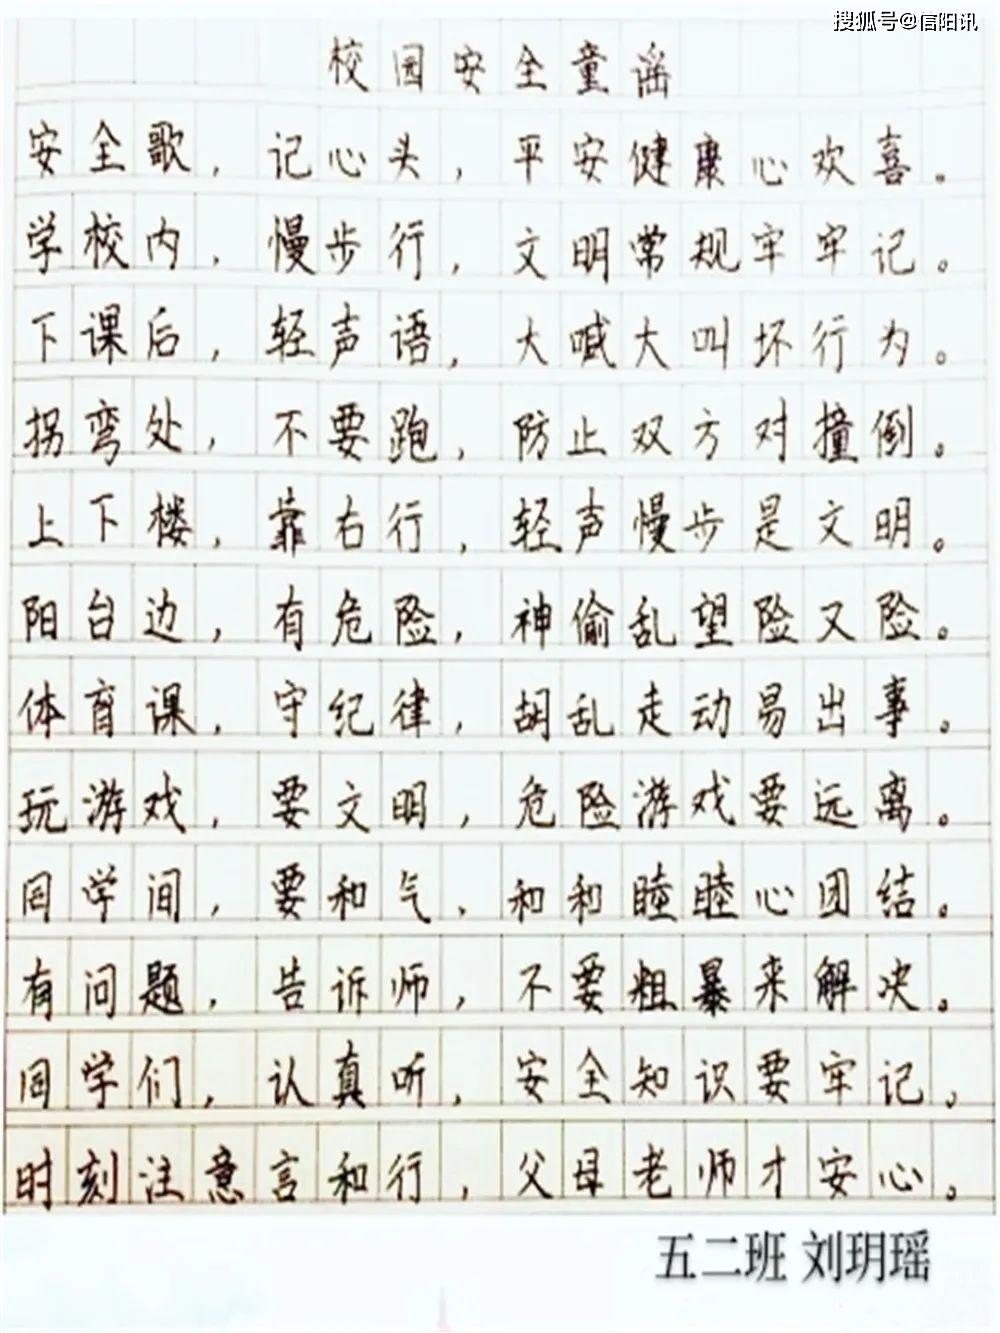 搜狐号@信阳讯
校园安全童谣
安全歌，记心头，平安健康心欢喜。
学校内，慢步行，文明常规牢牢记。
下课后，轻声语，大喊大叫坏行为。
拐弯处，不要跑，防止双方对撞倒。
上下楼，靠右行，轻声慢步是文明。
阳台边，有危险，神偷乱望险又险。
体育课，守纪律，胡乱走动易出事。
玩游戏，要文明，危险游戏要远离。
同学间，要和气，和和睦睦心团结。
有问题，告诉师，不要粗暴来解决。
同学们，认真听，安全知识要牢记。
时刻注意言和行，父母老师才安心。
五二班 刘玥瑶